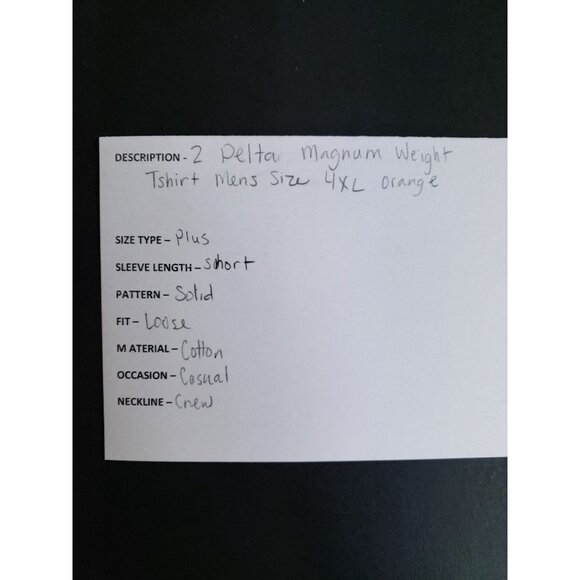 DESCRIPTION - 2 Delta Magnum Weight
Tshirt Mens Size 4XL orange
SIZE TYPE - Plus
SLEEVE LENGTH - short
PATTERN - Solid
FIT - Loose
M ATERIAL - Cotton
OCCASION - Casual
NECKLINE - Crew